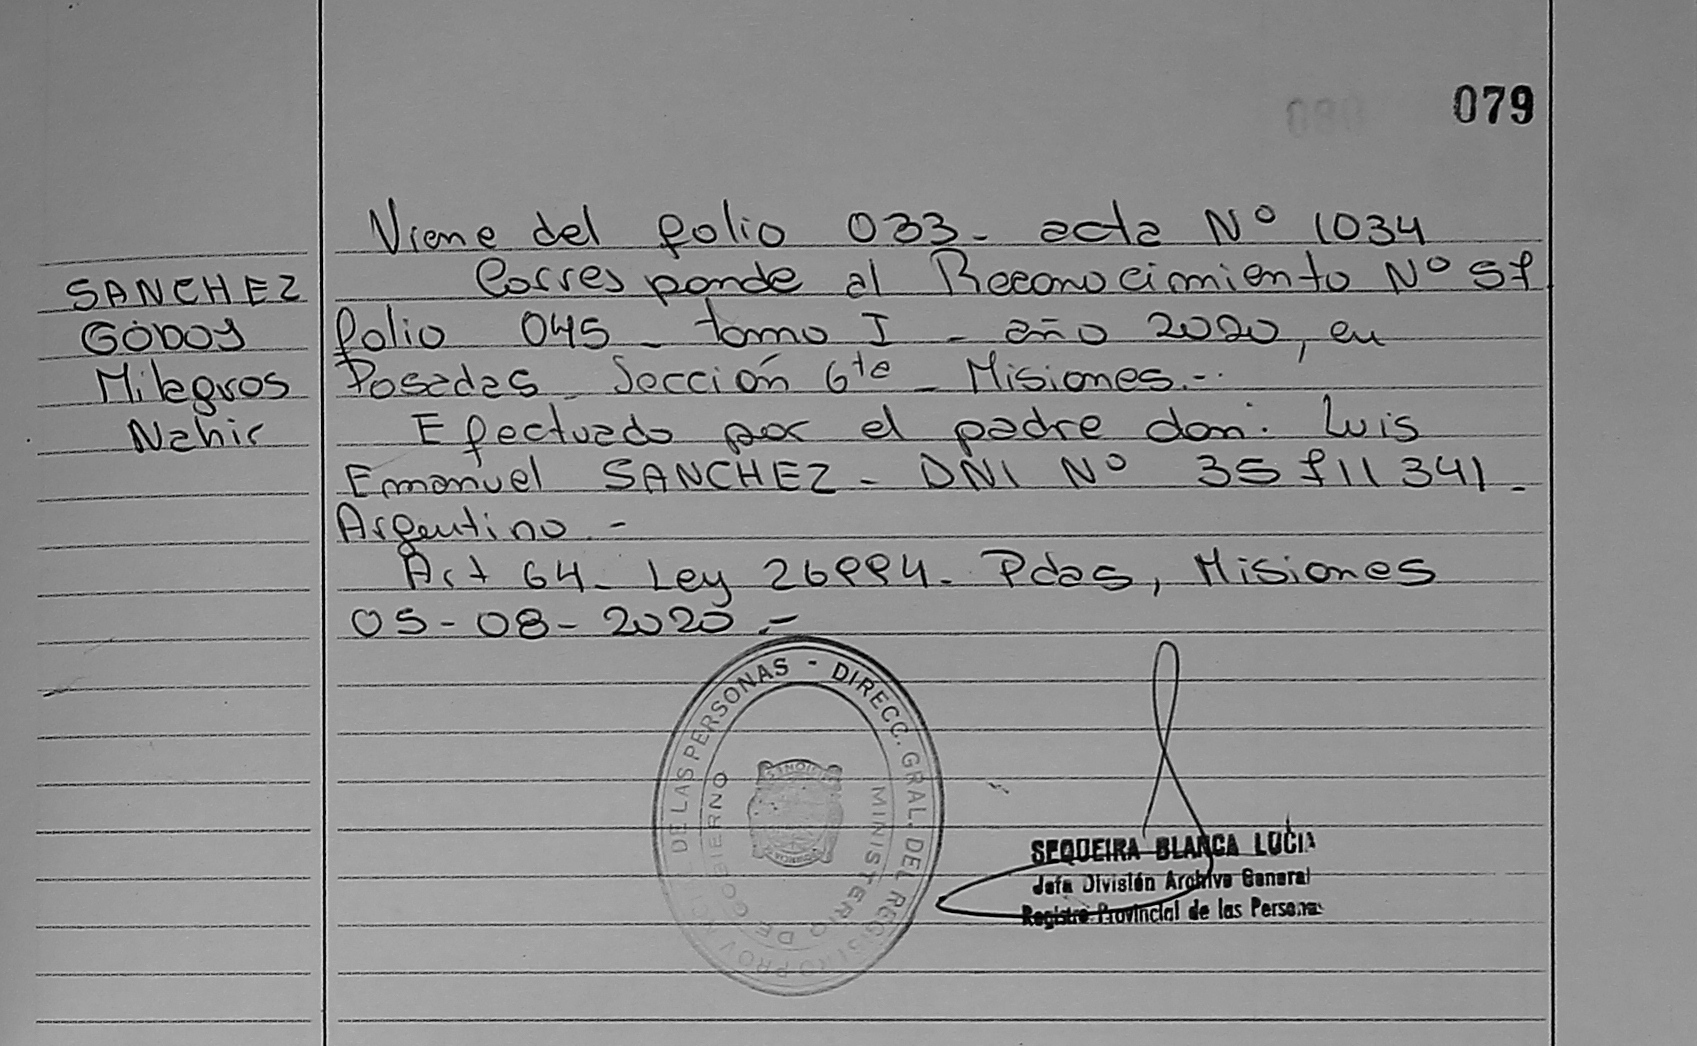 079
Viene del folio 033- acta Nº 1034
Corresponde al Reconocimiento Nº 59
folio 045 - tomo I - año 2020, en
Posadas Sección 6ta - Misiones.-
Efectuado por el padre don: Luis
Emanuel SANCHEZ - DNI Nº 35 911 341 -
Argentino. -
Art 64 - Ley 26994 - Pdas, Misiones
05-08-2020.-
SANCHEZ
GODOY
Milagros
Nahir
DIRECC. GRAL. DEL REGISTRO PROVINCIAL DE LAS PERSONAS -
MINISTERIO DE GOBIERNO
SEQUEIRA BLANCA LUCIA
Jefa División Archivo General
Registro Provincial de las Personas